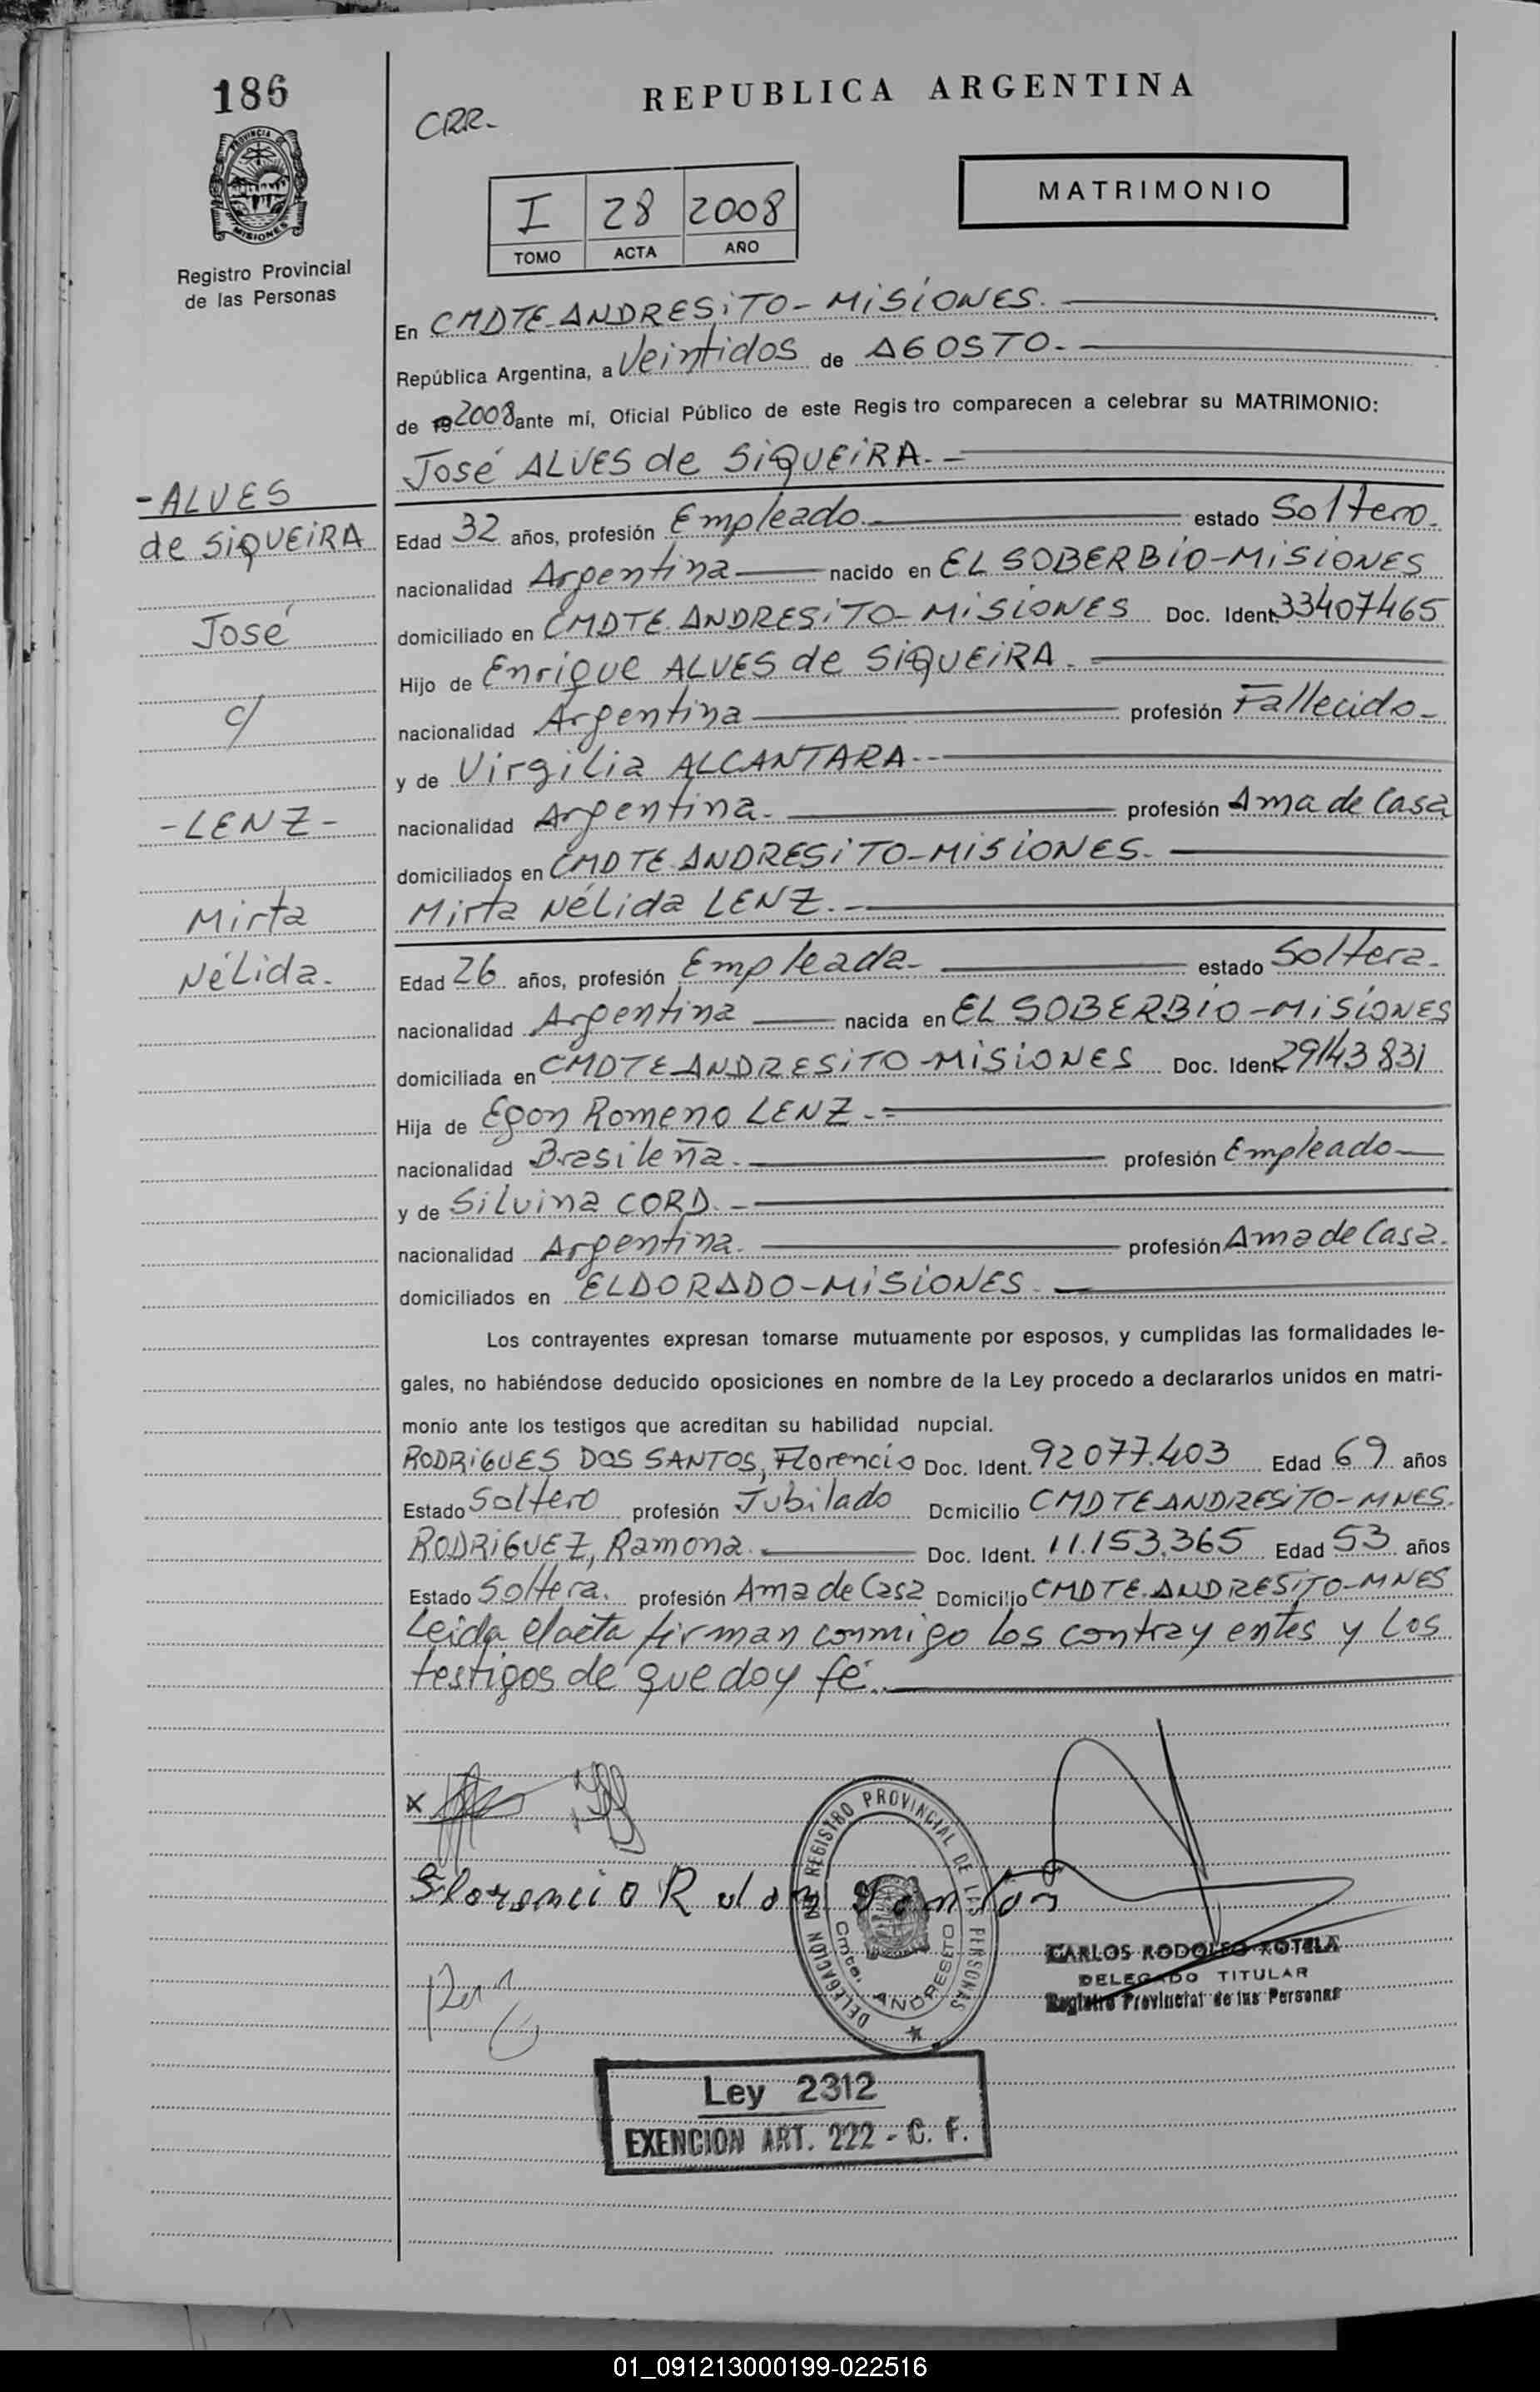 186
PROVINCIA
MISIONES
Registro Provincial
de las Personas
REPUBLICA ARGENTINA
CRR-
MATRIMONIO
I 28 2008
TOMO ACTA AÑO
En CMDTE-ANDRESiTO-MiSiONES.
República Argentina, a Veintidos de AGOSTO-
de 19 2008 ante mí, Oficial Público de este Regis tro comparecen a celebrar su MATRIMONIO:
José ALVES de SiQUEiRA.-
-ALVES
de SiQUEiRA
José
c/
-LENZ-
Mirta
Nélida-
Edad 32 años, profesión Empleado. estado Soltero-
nacionalidad Argentina nacido en EL SOBERBiO-MiSiONES
domiciliado en CMDTE.ANDRESiTO-MiSiONES Doc. Ident. 33407465
Hijo de Enrique ALVES de SiQUEiRA.
nacionalidad Argentina profesión Fallecido-
y de Virgilia ALCANTARA--
nacionalidad Argentina. profesión Ama de Casa
domiciliados en CMDTE-ANDRESiTO-MiSiONES-
Mirta Nélida LENZ.-
Edad 26 años, profesión Empleada- estado Soltera-
nacionalidad Argentina nacida en EL SOBERBiO-MiSiONES
domiciliada en CMDTE-ANDRESiTO-MiSiONES Doc. Ident. 29143831
Hija de Egon Romeno LENZ.-
nacionalidad Brasileña. profesión Empleado-
y de Silvina CORD.-
nacionalidad Argentina. profesión Ama de Casa.
domiciliados en ELDORADO-MiSiONES.
Los contrayentes expresan tomarse mutuamente por esposos, y cumplidas las formalidades le-
gales, no habiéndose deducido oposiciones en nombre de la Ley procedo a declararlos unidos en matri-
monio ante los testigos que acreditan su habilidad nupcial.
RODRiGUES DOS SANTOS, Florencio Doc. Ident. 92077.403 Edad 69 años
Estado Soltero profesión Jubilado Domicilio CMDTE ANDRESiTO-MNES.
RODRiGUEZ, Ramona. Doc. Ident. 11.153.365 Edad 53 años
Estado Soltera. profesión Ama de Casa Domicilio CMDTE.ANDRESiTO-MNES
Leida el acta firman conmigo los contrayentes y los
testigos de que doy fé.
x
Florencio R dos Santos
DELEGACION DEL REGISTRO PROVINCIAL DE LAS PERSONAS
Cmte. ANDRESITO
CARLOS RODOLFO ROTELA
DELEGADO TITULAR
Registro Provincial de las Personas
Ley 2312
EXENCION ART. 222 - C. F.
01_091213000199-022516